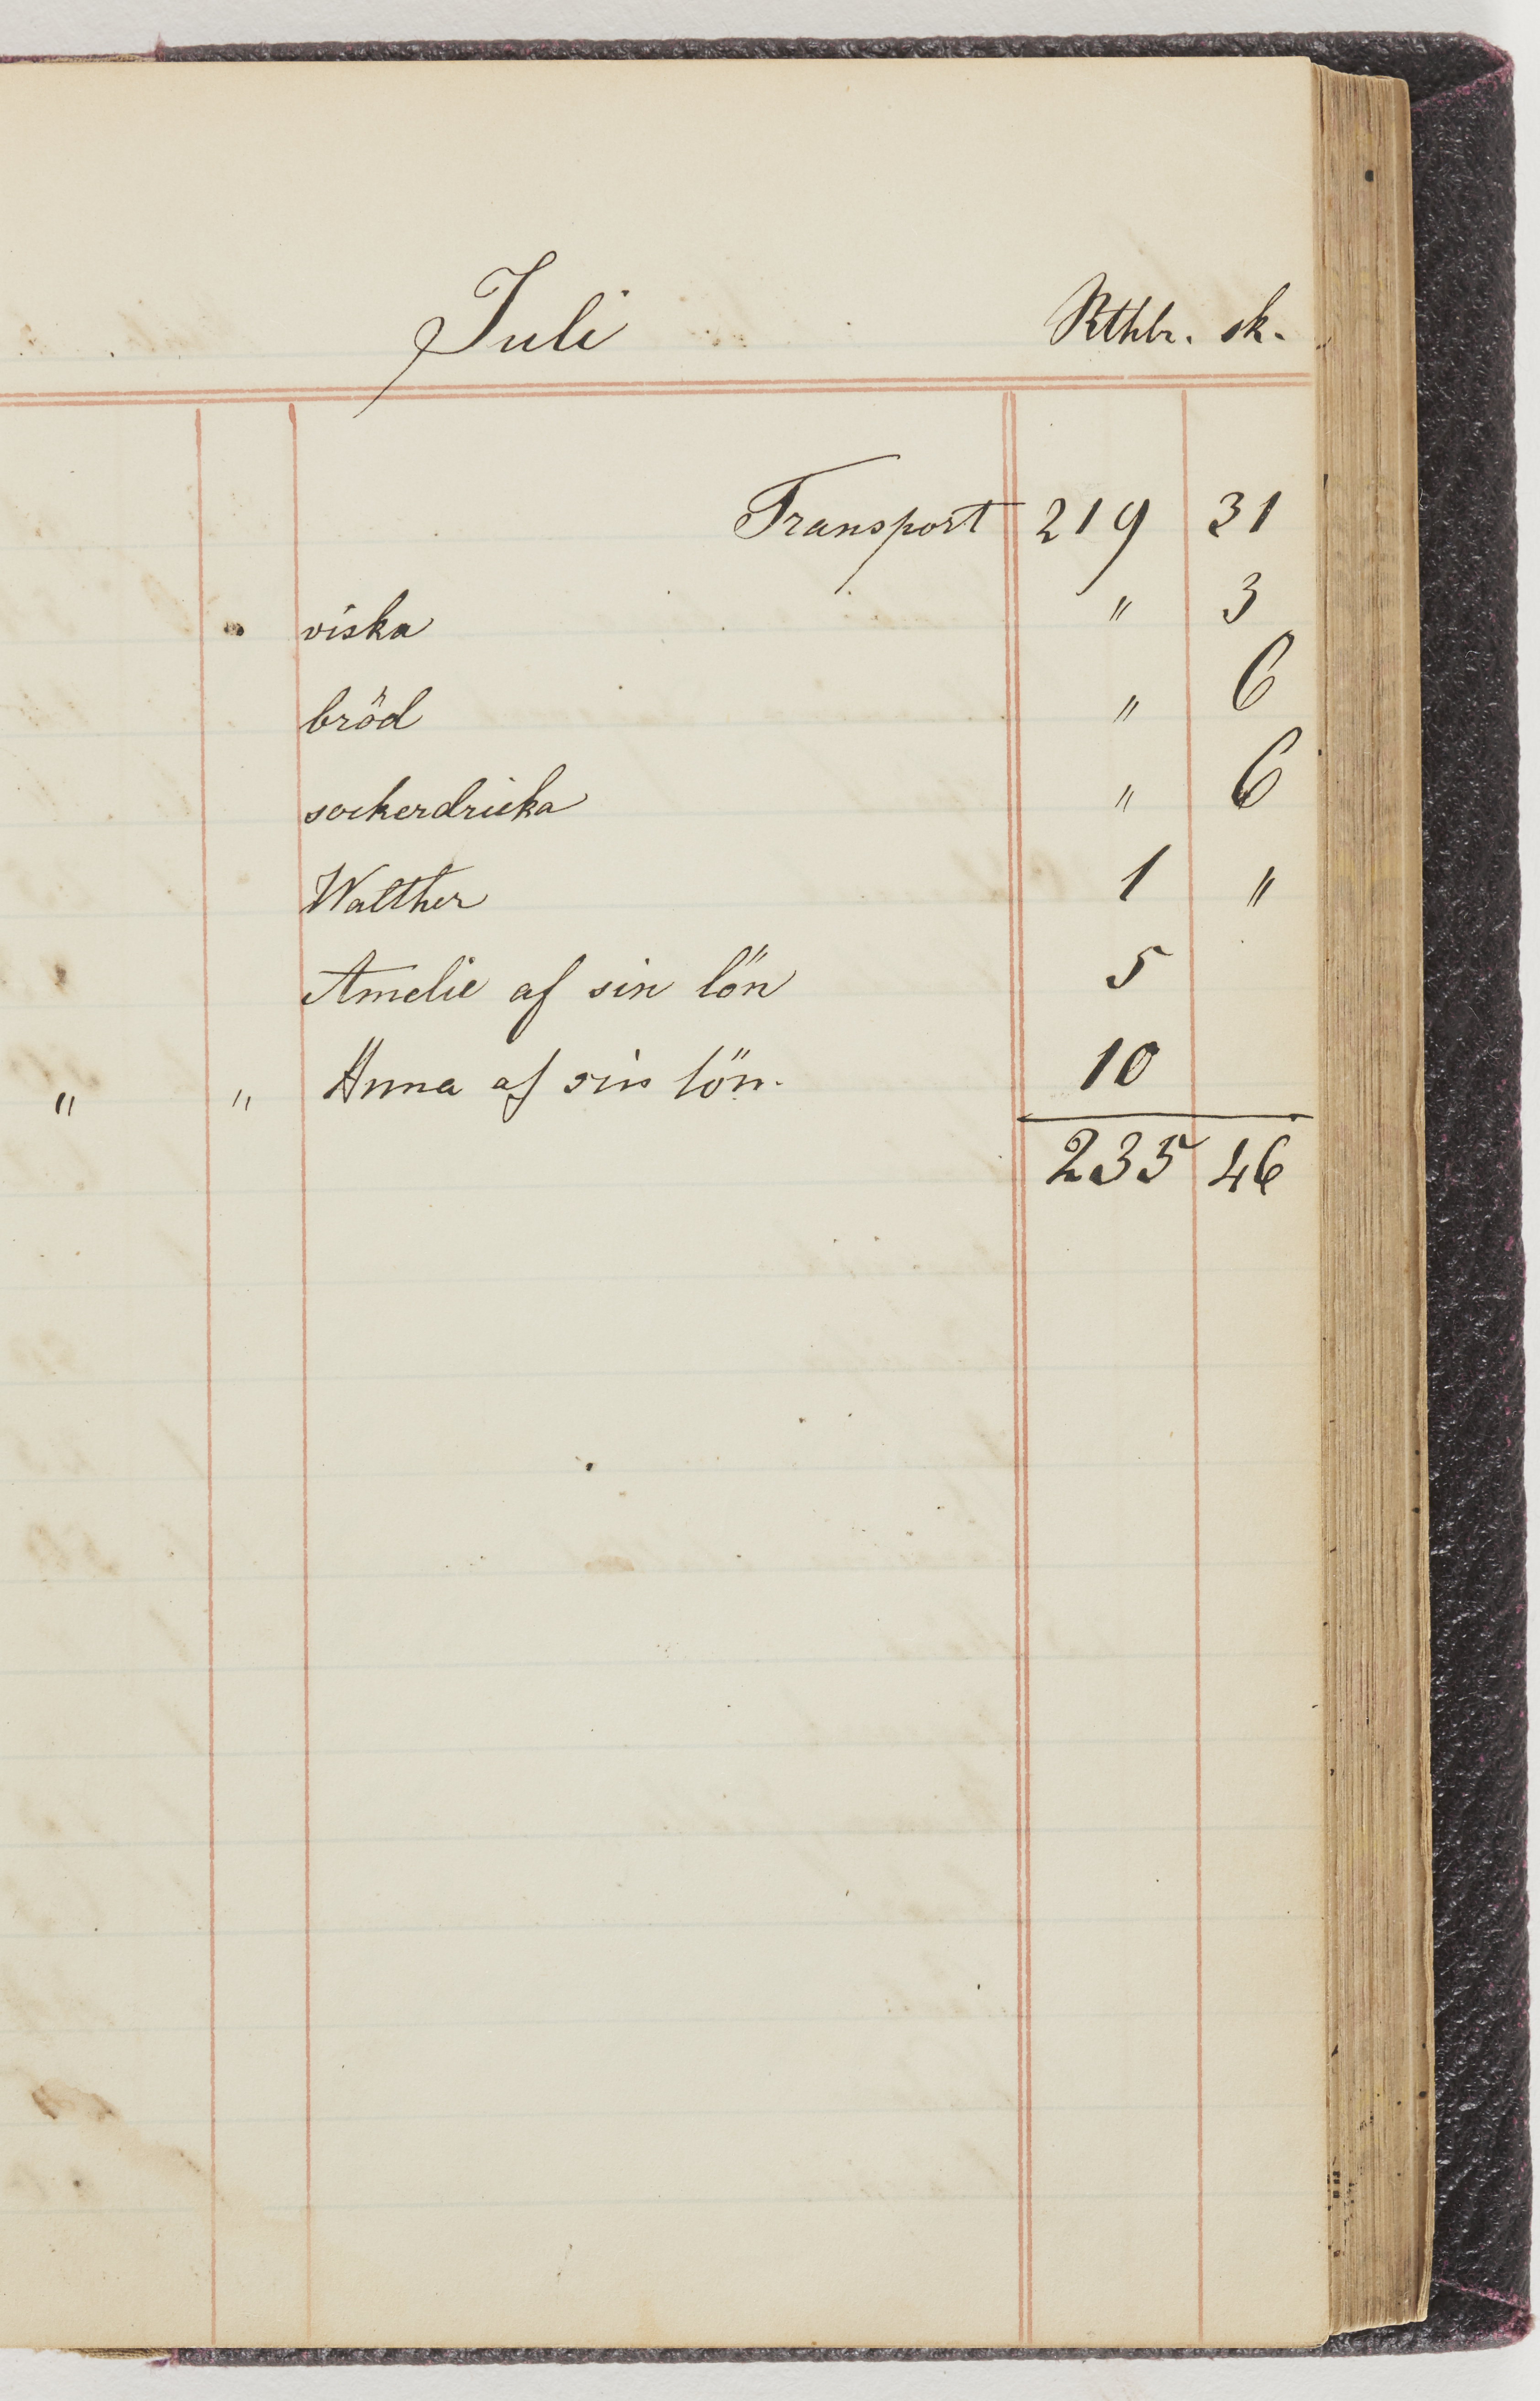 Juli Rthlr. sk.
Transport 219 31
viska " 3
bröd " 6
sockerdricka " 6
Walther 1 "
Amelie af sin lön 5
" " Anna af sin lön. 10
235 46